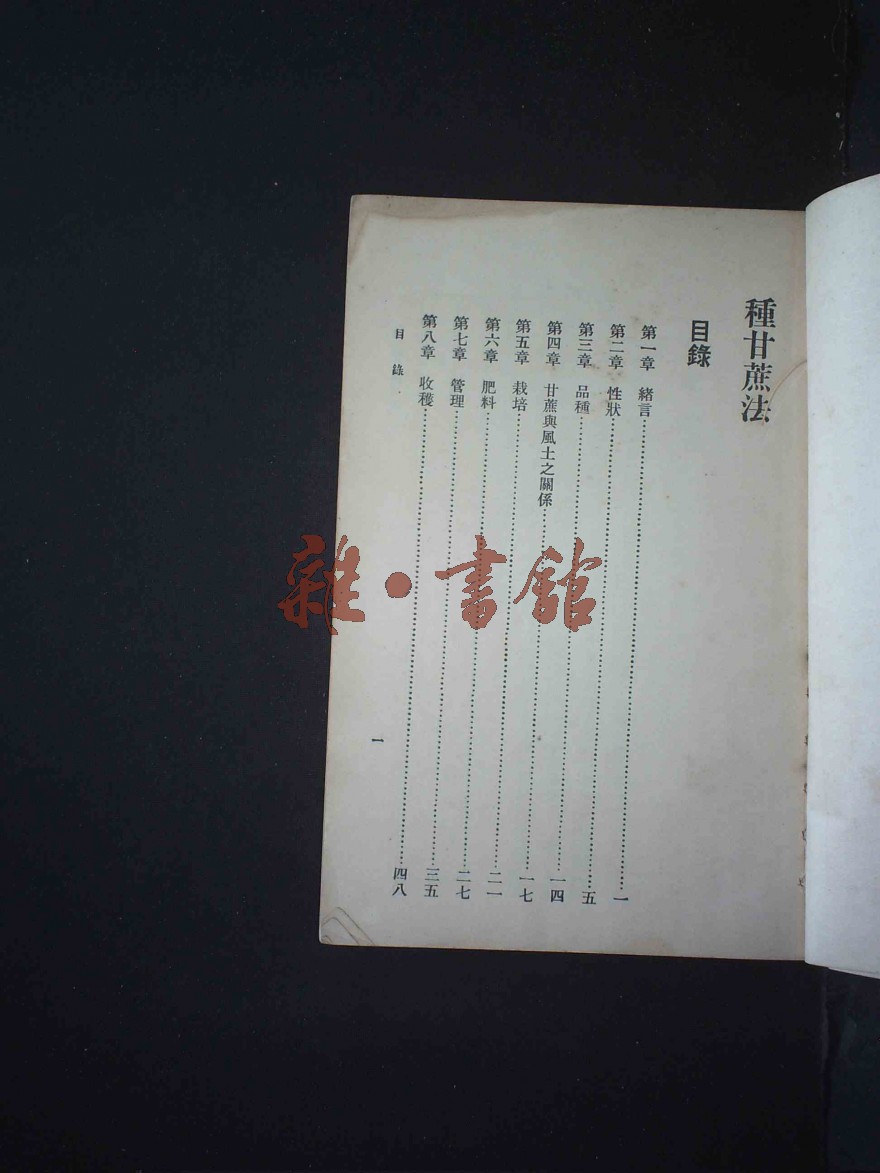 種甘蔗法
目錄
第一章 緒言……一
第二章 性狀……五
第三章 品種……一四
第四章 甘蔗與風土之關係……一七
第五章 栽培……二一
第六章 肥料……二七
第七章 管理……三五
第八章 收穫……四八
目錄
一
雜·書館